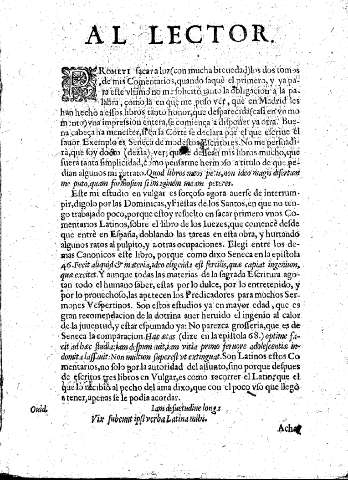 AL LECTOR.
PROMETI sacar a luz (con mucha breuedad) los dos tomos
de mis Comentarios, quando saquè el primero, y ya pa
ra este vltimo no me solicitò tanto la obligacion a la pa-
labra, como la en que me puso ver, que en Madrid les
han hecho a essos libros tanto honor, que desparecida (casi en vn mo
mento) vna impression entera, se comiença a disponer ya otra. Bue
na cabeça ha menester, si en la Corte se declara por el que escriue el
fauor. Exemplo es Seneca de modestos Escritores. No me persuadi-
rà, que soy docto (dezia) ver, que dessean mis libros mucho, que
fuera tanta simplicidad, como pensarme hermoso a titulo de que pe-
dian algunos mi retrato. Quod libros meos petis, non ideo magis disertum
me puto, quam formosum si imaginem meam peteres.
Este mi estudio en vulgar es forçoso agora auerse de interrum-
pir, digolo por las Dominicas, y Fiestas de los Santos, en que no ten-
go trabajado poco, porque estoy resuelto en sacar primero vnos Co-
mentarios Latinos, sobre el libro de los Iuezes, que comencè desde
que entrè en España, doblando las tareas en esta obra, y hurtando
algunos ratos al pulpito, y a otras ocupaciones. Elegi entre los de-
mas Canonicos este libro, porque como dixo Seneca en la epistola
46. Fecit aliquid & materia, ideo eligenda est fertilis, quæ capiat ingenium,
quæ excitet. Y aunque todas las materias de la sagrada Escritura ago-
tan todo el humano saber, estas por lo dulce, por lo entretenido, y
por lo prouechoso, las apetecen los Predicadores para muchos Ser-
mones Vespertinos. Son estos estudios ya en mayor edad, que es
gran recomendacion de la dotrina auer heruido el ingenio al calor
de la juventud, y estar espumado ya: No parezca grosseria, que es de
Seneca la comparacion Hæc ætas (dize en la epistola 68.) optime fa-
cit ad hæc studia: iam despumuit, iam vitia primo feruore adolescentiæ in-
domita lassauit: Non multum superest vt extinguat. Son Latinos estos Co
mentarios, no solo por la autoridad del assunto, sino porque despues
de escritos tres libros en Vulgar, es como recorrer el Latin, que el
que lo recibiò al pecho del ama dixo, que con el poco vso que llegò
a tener, apenas se le podia acordar.
Ouid. Iam desuetudine longa
Vix subeunt ipsi verba Latina mihi.
Acha-